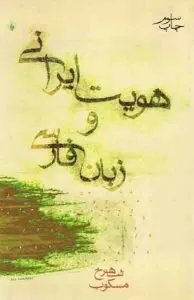 چاپ سوم
هویت ایرانی
و
زبان فارسی
شاهرخ
مسکوب